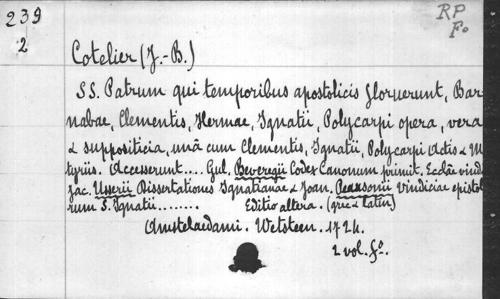 239
2
RP
Fo.
Cotelier (J.-B.)
SS. Patrum qui temporibus apostolicis floruerunt, Bar
nabae, Clementis, Hermae, Ignatii, Polycarpi opera, vera
& supposititia, unà cum Clementis, Ignatii, Polycarpi Actis & M
tyriis. Accesserunt.... Gul. Beveregii Codex Canonum primit. Ecclae vind
Jac. Usserii Dissertationes Ignatianae & Joan. Pearsonii Vindiciae epistol
rum S. Ignatii........ Editio altera. (gre & latin)
Amstelaedami. Wetsteen. 1724.
2 vol. fo.